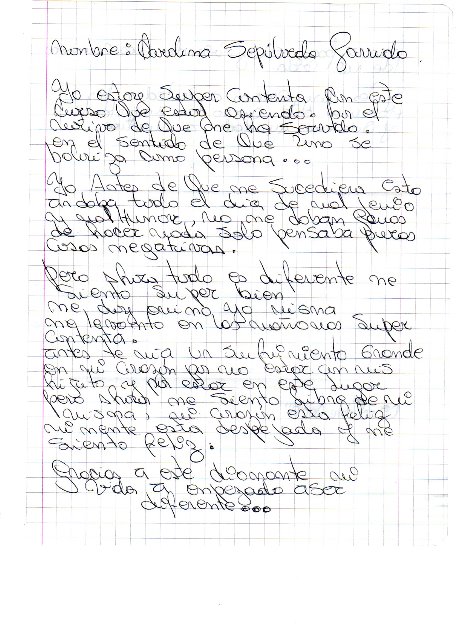 nombre: Carolina Sepúlveda Garrido.
Yo estoy super contenta con este
curso que estoy asiendo. por el
motivo de que me ha servido.
en el sentido de que uno se
valoriza como persona...
Yo Antes de que me sucediera esto
andaba todo el dia de mal genio
y mal Humor, no me daban ganas
de hacer nada solo pensaba puras
cosas negativas.
pero ahora todo es diferente me
siento super bien.
me doy animo yo misma
me levanto en las mañanas super
contenta.
antes tenia un sufrimiento grande
en mi corasón por no estar con mis
hijito, y por estar en este lugar
pero ahora me siento libre de mi
misma, mi corasón esta feliz
mi mente esta despejada y me
siento feliz.
Gracias a este diamante mi
vida a enpezado aser
diferente...